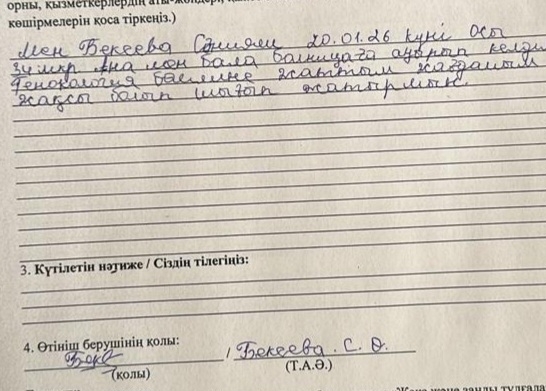 орны, қызметкерлердің аты-жөндері,
көшірмелерін қоса тіркеніз.)
Мен Бекеева Сания 20.01.26 күні осы
3 мкр Ана мен бала балницаға ауырып келдім
Генокалогия бөліміне жаттым жағдайым
жақсы болып шығып жатырмын.
3. Күтілетін нәтиже / Сіздің тілегіңіз:
4. Өтініш берушінің қолы:
Беке / Бекеева. С. Ө.
(қолы) (Т.А.Ә.)